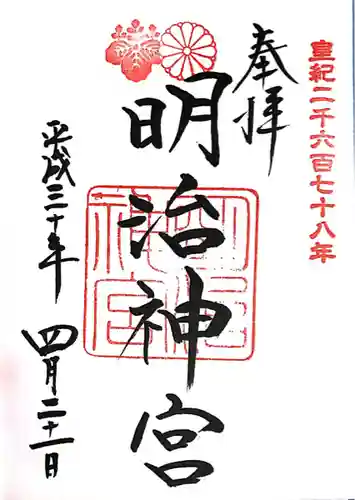 皇紀二千六百七十八年
奉拝
明治神宮
明治神宮
平成三十年
四月二十一日